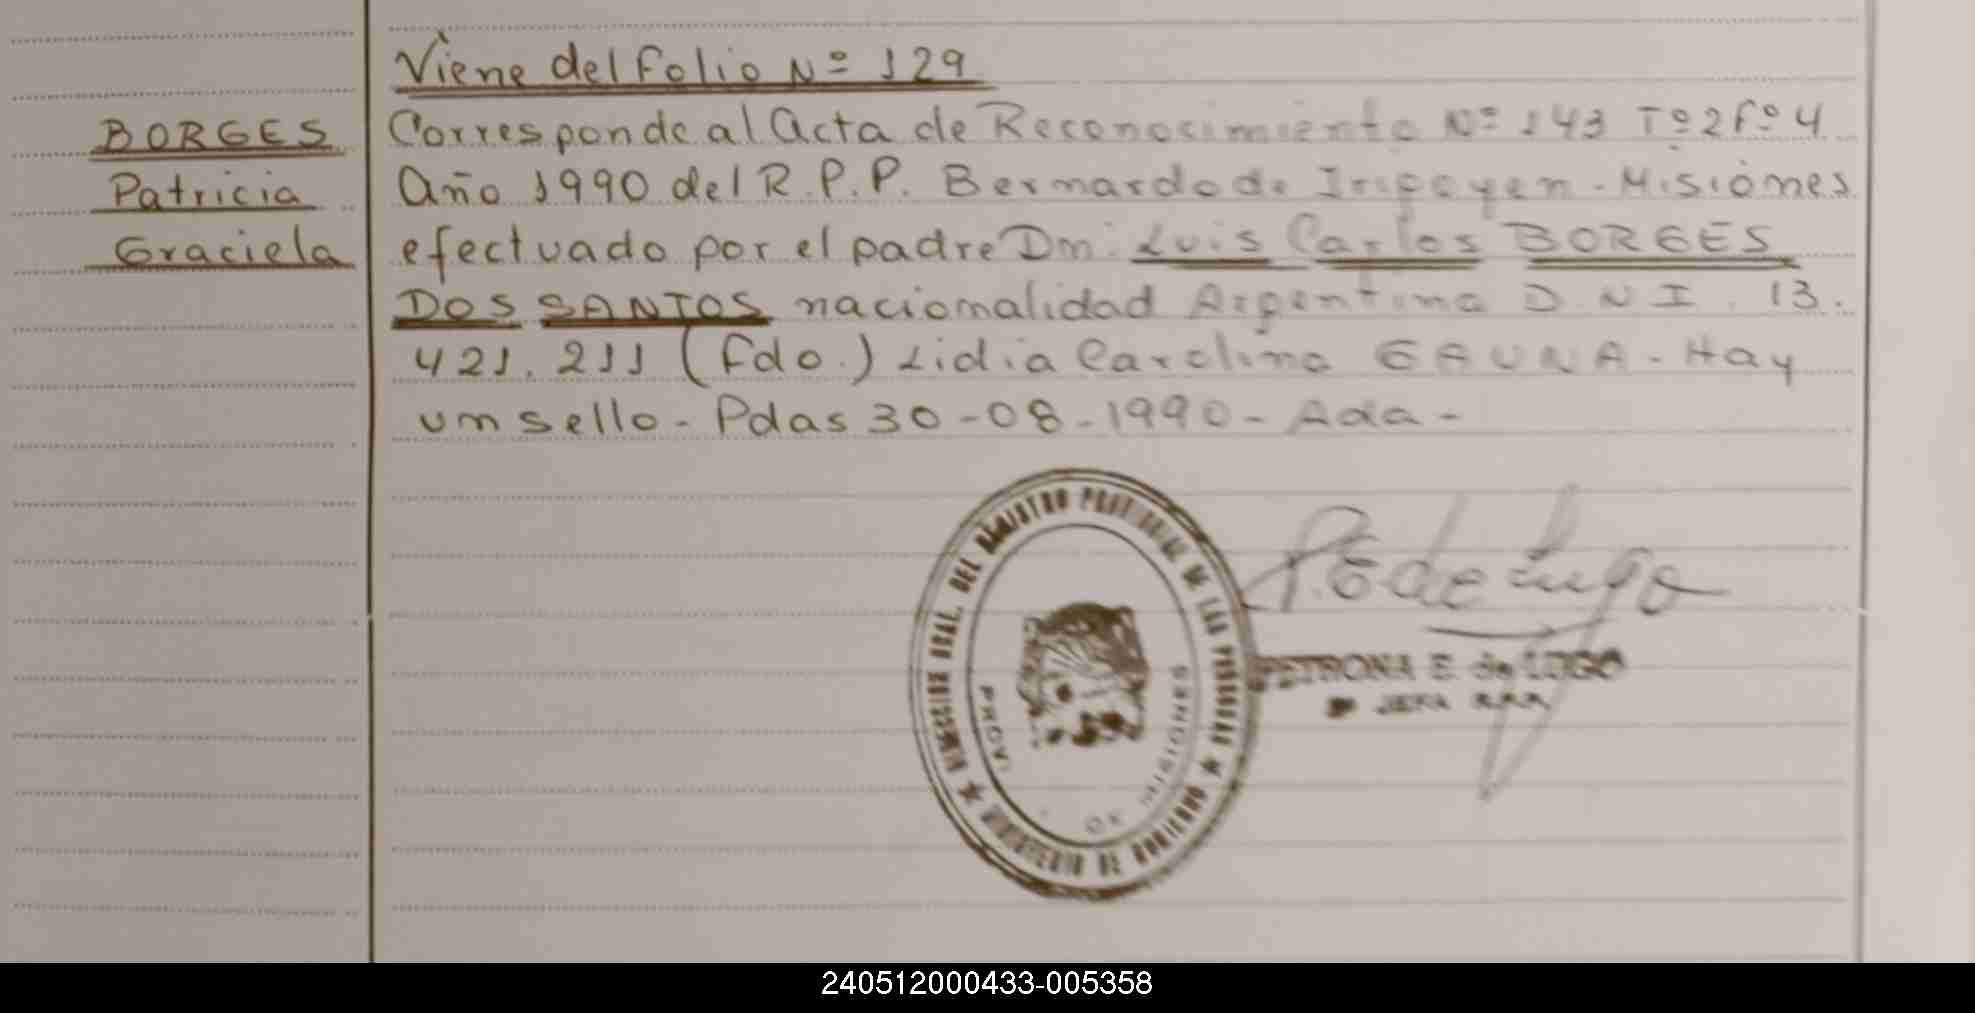 Viene del folio Nº 129
BORGES
Patricia
Graciela
Corresponde al Acta de Reconocimiento Nº 143 Tº 2 Fº 4
Año 1990 del R.P.P. Bernardo de Irigoyen - Misiones
efectuado por el padre Dn. Luis Carlos BORGES
DOS SANTOS nacionalidad Argentina D.N.I. 13.
421.211 (Fdo.) Lidia Carolina GAUNA - Hay
un sello - Pdas 30-08-1990 - Ada -
DIRECCION GRAL. DEL REGISTRO PROVINCIAL DE LAS PERSONAS
MINISTERIO DE GOBIERNO
PROV. DE MISIONES
P. E de Lugo
PETRONA E. de LUGO
JEFA R.P.P.
240512000433-005358